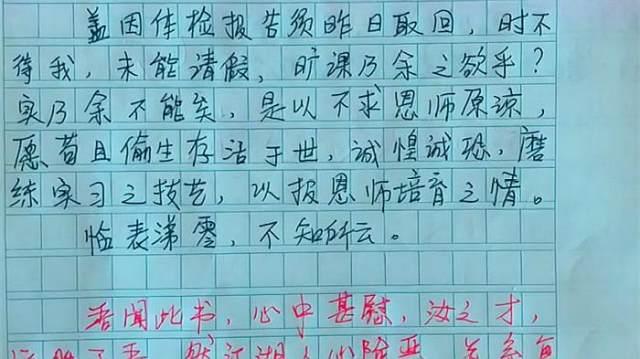 盖因体检报告须昨日取回，时不
待我，未能请假，旷课乃余之欲乎？
实乃余不能矣，是以不求恩师原谅，
愿苟且偷生存活于世，诚惶诚恐，磨
练实习之技艺，以报恩师培育之情。
临表涕零，不知所云。
吾闻此书，心中甚慰，汝之才，